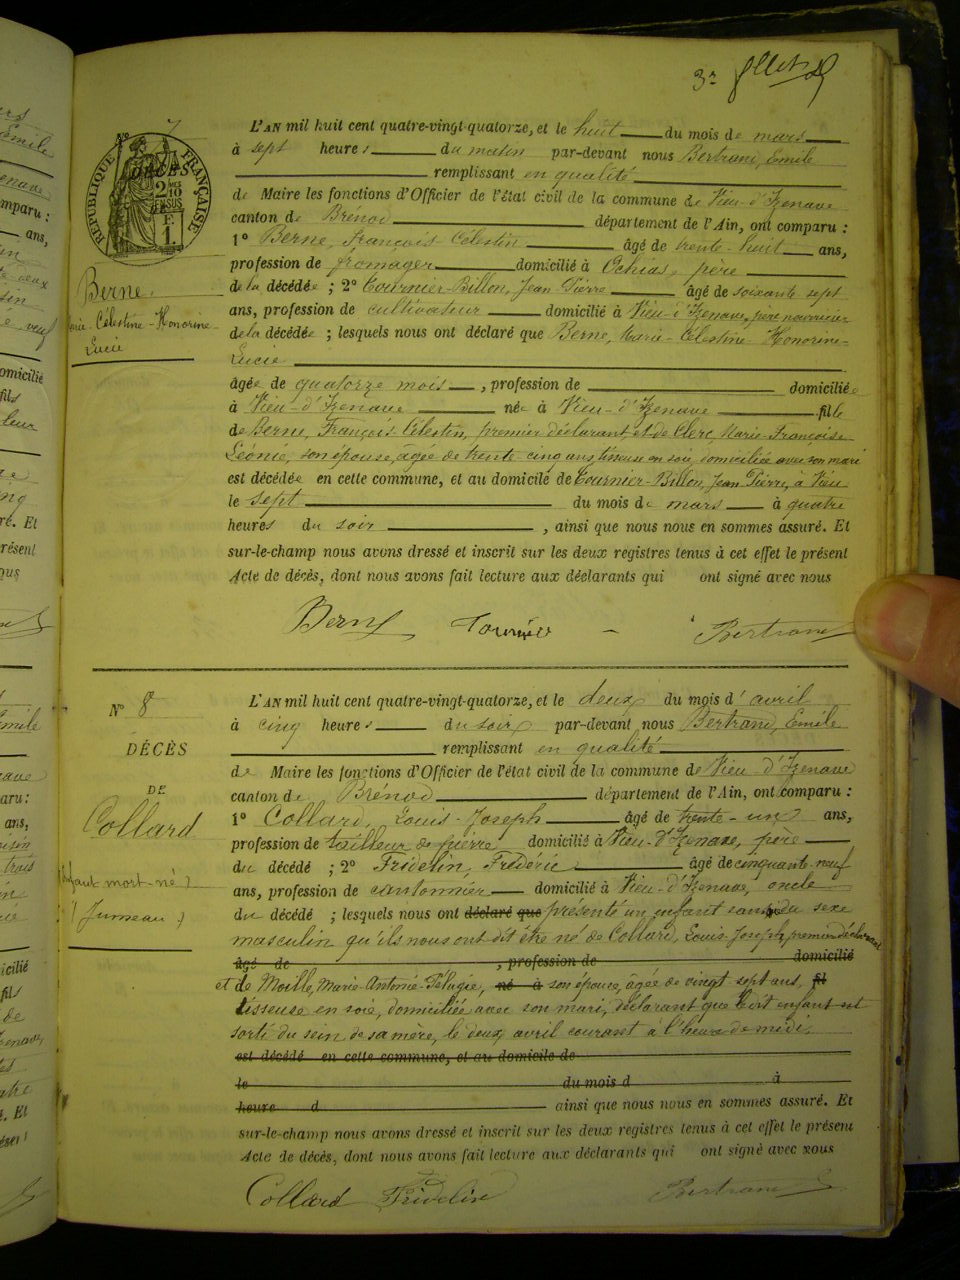 3e
7
RÉPUBLIQUE FRANÇAISE
DÉCÈS
2/10 EN SUS
F. 1.
Berne
Célestine-Honorine-
Lucie
L'AN mil huit cent quatre-vingt-quatorze, et le huit du mois de mars
à sept heures du matin par-devant nous Bertrand, Emile
remplissant en qualité
de Maire les fonctions d'Officier de l'état civil de la commune de Vieu-d'Izenave
canton de Brénod département de l'Ain, ont comparu :
1° Berne, François-Célestin âgé de trente-huit ans,
profession de fromager domicilié à Ochias, père
de la décédée ; 2° Tournier-Billon, Jean-Pierre âgé de soixante-sept
ans, profession de cultivateur domicilié à Vieu-d'Izenave, père nourricier
de la décédée ; lesquels nous ont déclaré que Berne, Marie-Célestine-Honorine-
Lucie
âgée de quatorze mois, profession de domiciliée
à Vieu-d'Izenave née à Vieu-d'Izenave fille
de Berne, François-Célestin, premier déclarant, et de Clerc, Marie-Françoise-
Léonie, son épouse, âgée de trente-cinq ans, tisseuse en soie, domiciliée avec son mari
est décédée en cette commune, et au domicile de Tournier-Billon, Jean-Pierre, à Vieu
le sept du mois de mars à quatre
heures du soir, ainsi que nous nous en sommes assuré. Et
sur-le-champ nous avons dressé et inscrit sur les deux registres tenus à cet effet le présent
Acte de décès, dont nous avons fait lecture aux déclarants qui ont signé avec nous
Berne Tournier Bertrand
N° 8
DÉCÈS
DE
Collard
(Enfant mort-né)
(Jumeau)
L'AN mil huit cent quatre-vingt-quatorze, et le deux du mois d'avril
à cinq heures du soir par-devant nous Bertrand, Emile
remplissant en qualité
de Maire les fonctions d'Officier de l'état civil de la commune de Vieu-d'Izenave
canton de Brénod département de l'Ain, ont comparu :
1° Collard, Louis-Joseph âgé de trente-un ans,
profession de tailleur de pierre domicilié à Vieu-d'Izenave, père
du décédé ; 2° Fridelin, Frédéric âgé de cinquante-neuf
ans, profession de cantonnier domicilié à Vieu-d'Izenave, oncle
du décédé ; lesquels nous ont déclaré que présenté un enfant sans vie du sexe
masculin qu'ils nous ont dit être né de Collard, Louis-Joseph, premier déclarant
âgé de , profession de domicilié
et de Moille, Marie-Antonie-Pélagie, né à son épouse, âgée de vingt-sept ans, fil
tisseuse en soie, domiciliée avec son mari, déclarant que ledit enfant est
sorti du sein de sa mère, le deux avril courant à l'heure de midi,
est décédé en cette commune, et au domicile de
le du mois d à
heure d ainsi que nous nous en sommes assuré. Et
sur-le-champ nous avons dressé et inscrit sur les deux registres tenus à cet effet le présent
Acte de décès, dont nous avons fait lecture aux déclarants qui ont signé avec nous
Collard Fridelin Bertrand